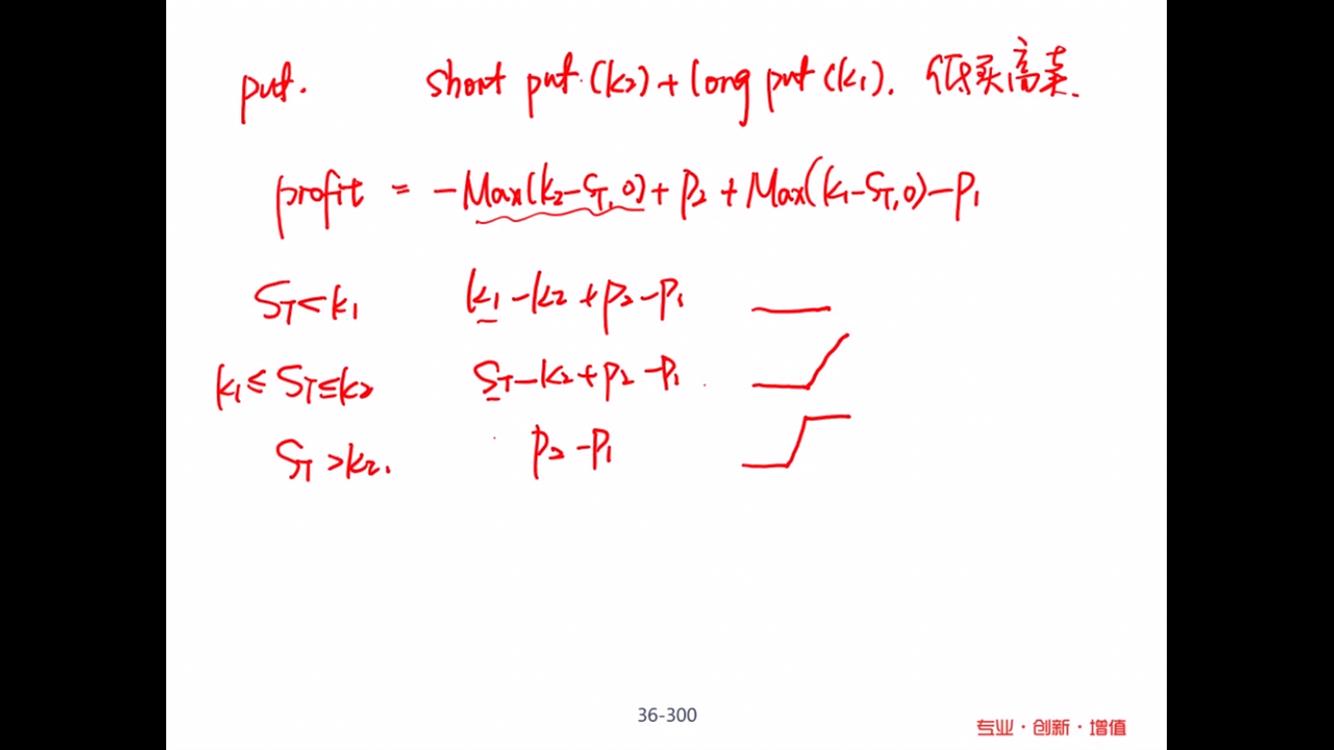 put. short put (k2) + long put (k1). 低买高卖.
profit = -Max(k2-ST,0) + P2 + Max(k1-ST,0) - P1
ST<k1 k1-k2+P2-P1
k1≤ST≤k2 ST-k2+P2-P1
ST>k2. P2-P1
36-300
专业·创新·增值